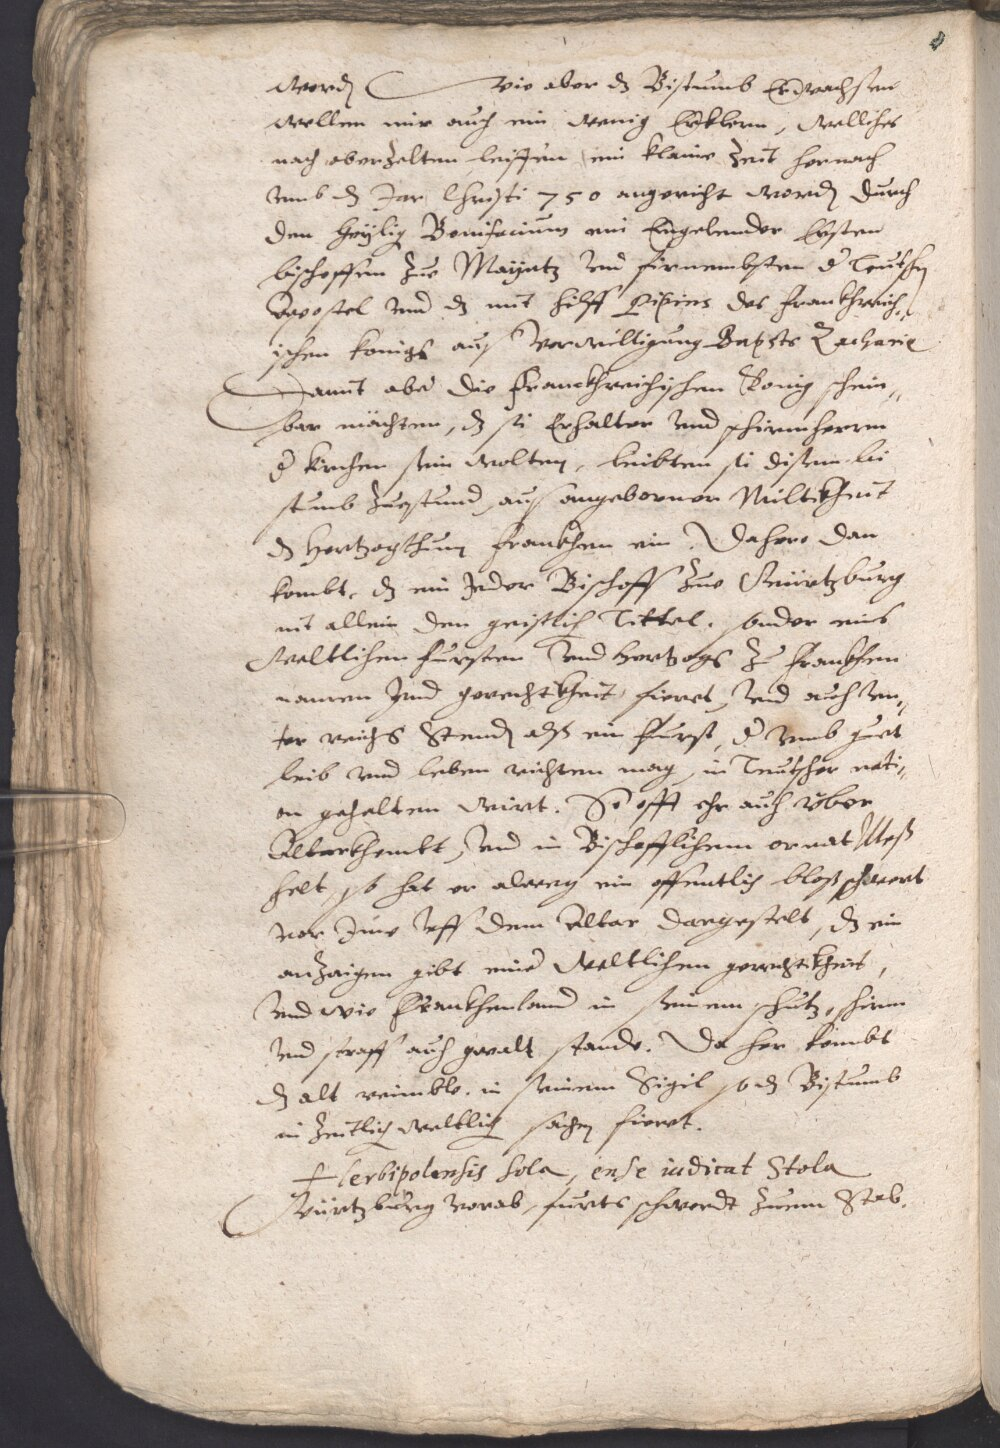 word(en) Wie aber dz Bistumb Erwachsen
wellen mir auch ein wenig Erklern, welliches
nach oberzelten leissen ein klaine Zeit hernach
vmb dz Jar Christi 750 angericht word(en) durch
den heÿlig Bonifacium ein Engelender Ersten
bischoffen zue Mayntz vnd firnembsten d(er) Teutsch(en)
Apostel vnd dz mit hilff Pipins des Frankhreich„
ischen Königs auß verwilligung Bapsts Zacharie
Damit aber die Franckhreichischen König schein„
bar mächten, dz si Erhalter vnd schirmherrn
d(er) kirchen sein wolten, leibten si disem bi
stumb zuestund, auß angeborner Miltikheit
dz Hertzogthum Frankhen ein. Dahero dan
kombt, dz ein Jeder Bischoff zue Würtzburg
nit allein den geistlich Tittel, sonder eins
Weltlichen fürsten vnd Hertzogs zu Frankhen
namen vnd gerechtikheit fieret, vnd auch vn„
ter reichs Stend(en) alß ein Fürst, d(er) vmb guet
leib vnd leben richten mag, in Teutscher nati„
on gehalten wirt. So offt ehr auch vber
Altarkhombt, vnd in Bischofflichem ornat Meß
helt, so hat er alweg ein offentlich bloß schwert
vor Ime vff dem Altar dargestelt, dz ein
anzaigen gibt eine(r) Weltlichen gerechtikheit,
vnd wie Frankhenland in seinem schutz, schirm
vnd straff auch gwalt stande. Da her kombt
dz alt reimble, in seinem Sigil so dz Bistumb
in zeitlich Weltlich sachen fieret.
Herbipolensis sola, ense iudicat Stola
Würtzburg vorab, fürts schwerdt zuem Stab.